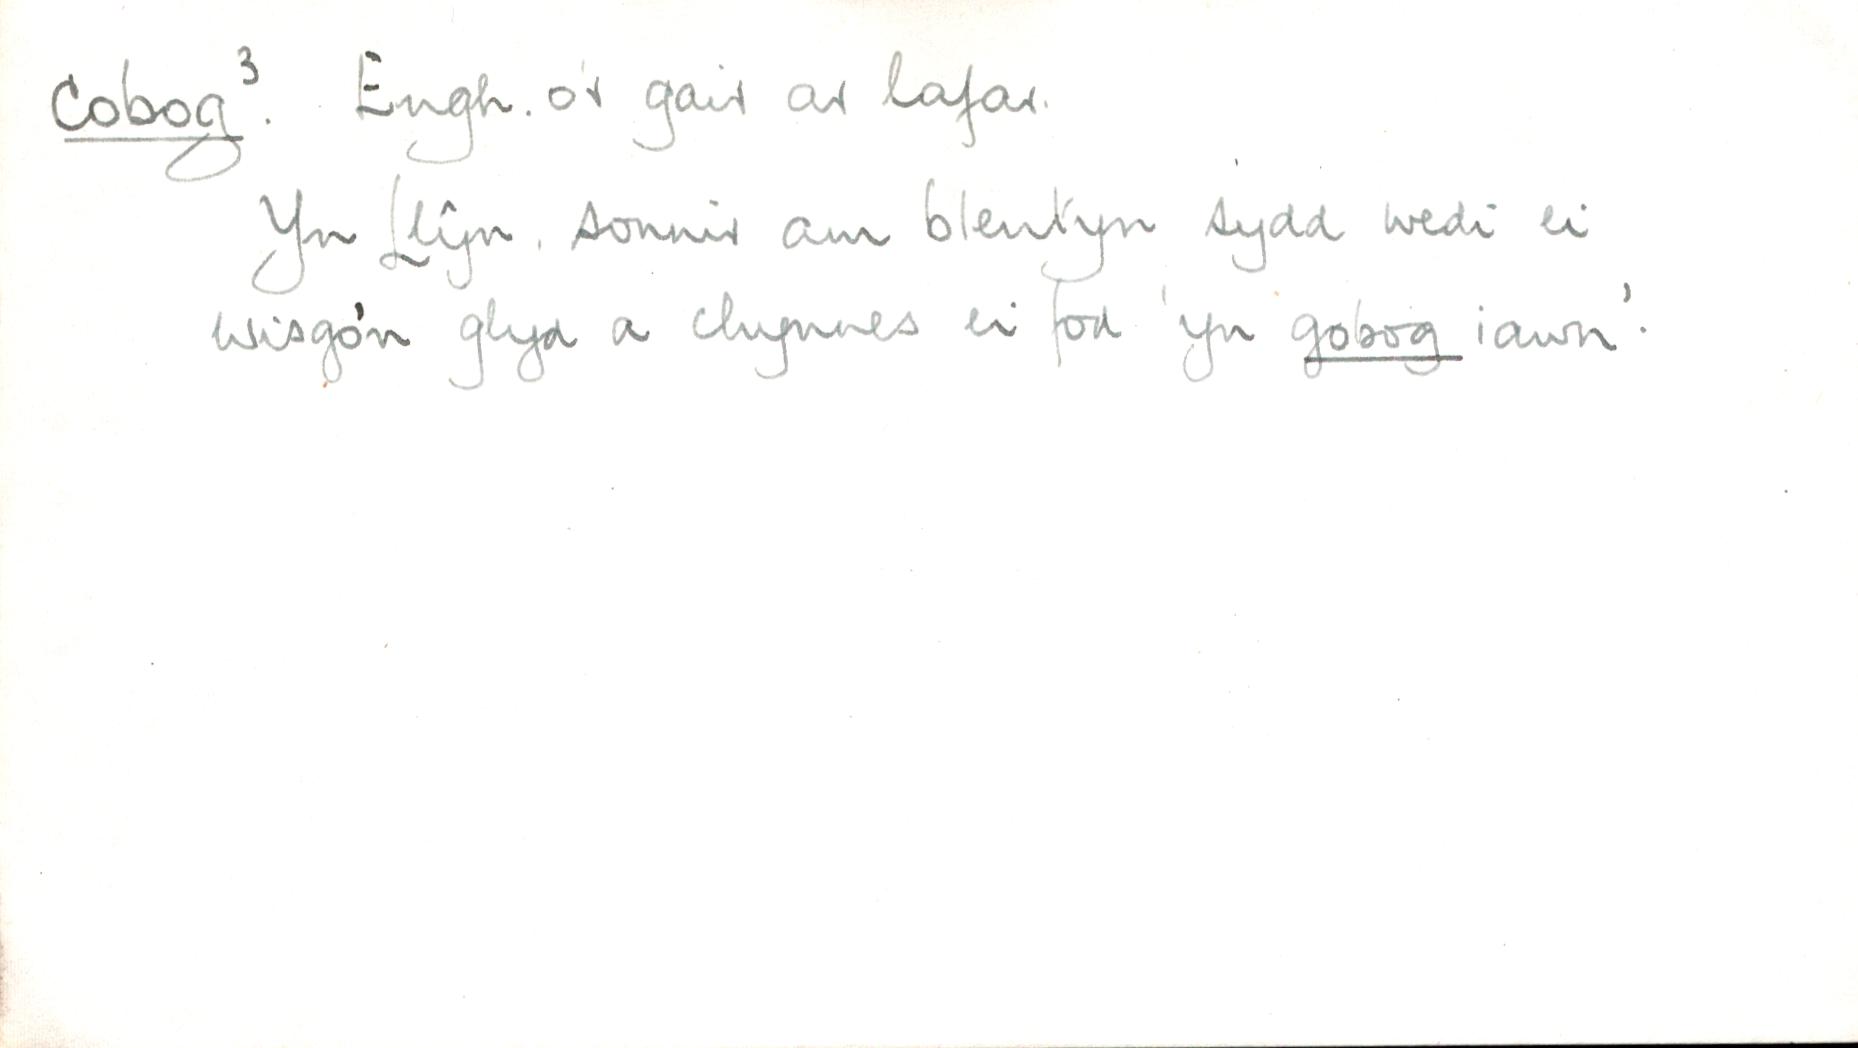 Cobog³. Engh. o'r gair ar lafar.
Yn Llŷn, sonnir am blentyn sydd wedi ei
wisgo'n glyd a chynnes ei fod 'yn gobog iawn'.